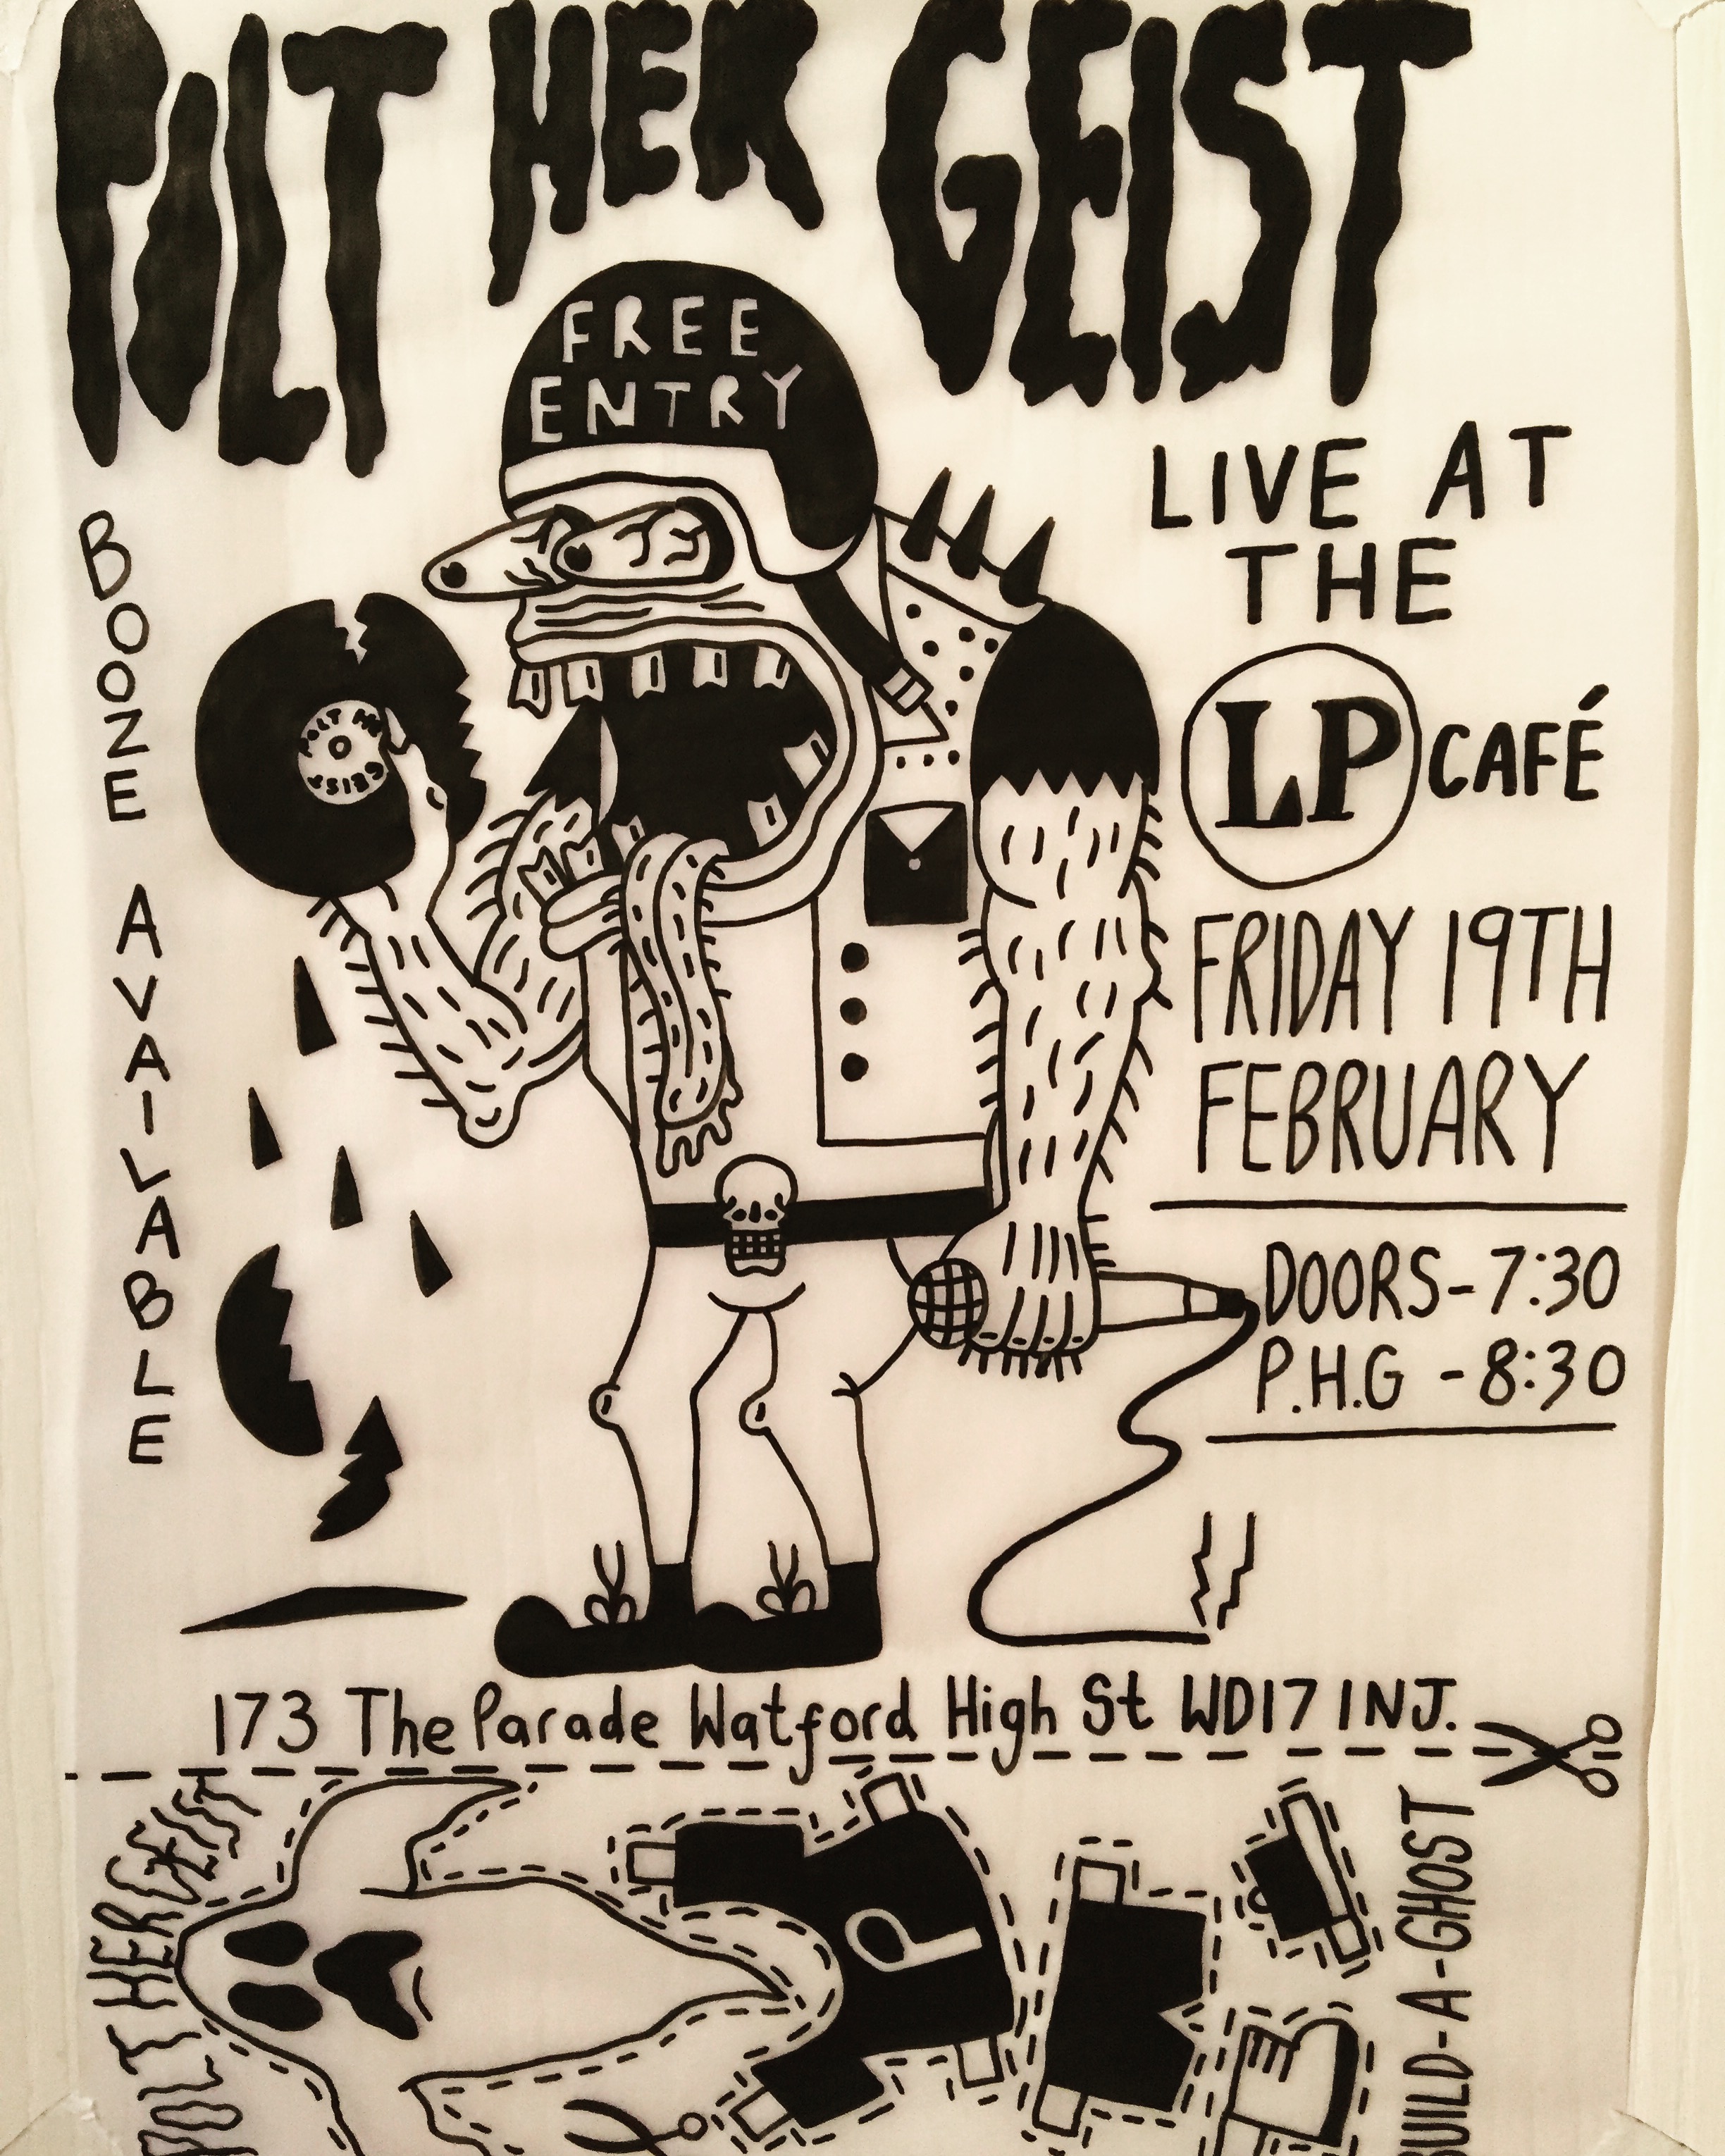 POLT HER GEIST
FREE
ENTRY
LIVE AT
THE
LP CAFÉ
BOOZE AVAILABLE
POLT HER
GEIST
FRIDAY 19TH
FEBRUARY
DOORS-7:30
P.H.G - 8:30
173 The Parade Watford High St WD17 1NJ.
POLT HERGEIST
P
BUILD-A-GHOST